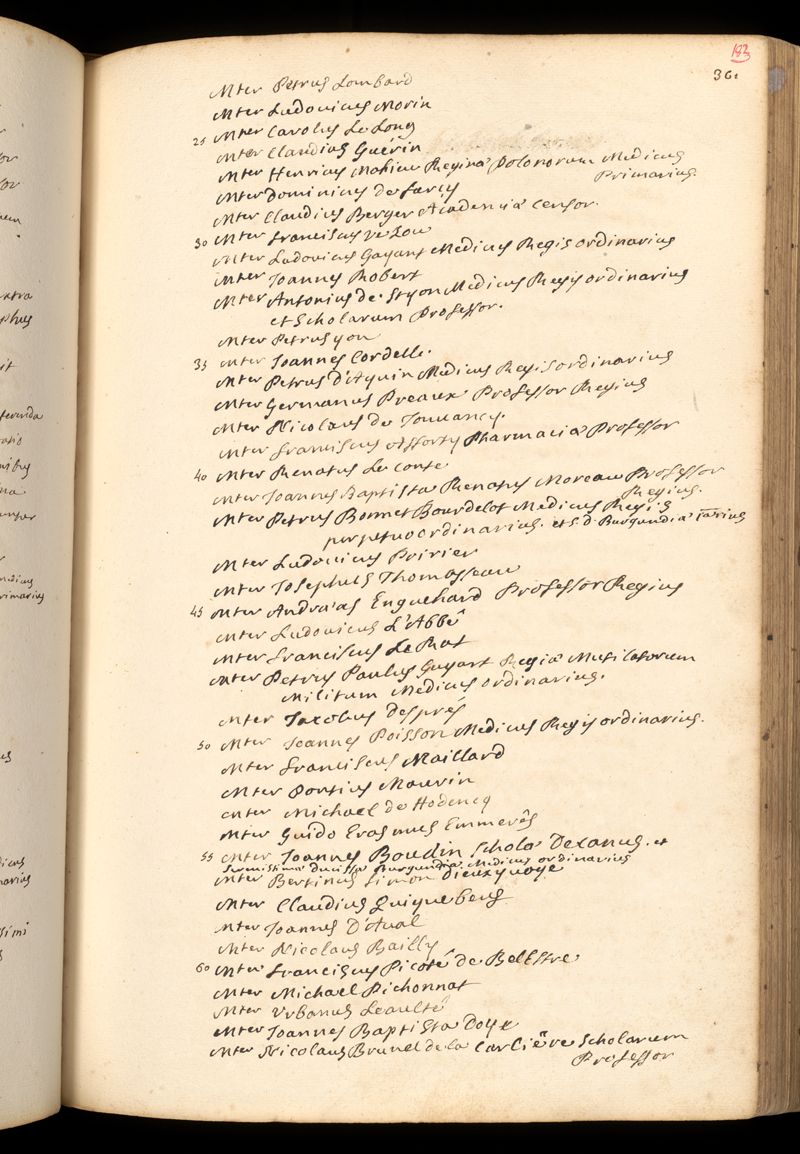 182
361
Mter Petrus Lombard
Mter Ludovicus Morin
25 Mter Carolus Le Long
Mter Claudius Guérin
Mter Henricus Mahieu Reginæ Polonorum Medicus
Primarius.
Mter Dominicus de Farcy
Mter Claudius Berger Academiæ Censor.
30 Mter Franciscus Vezou
Mter Ludovicus Gayant Medicus Regis ordinarius
Mter Joannes Robert
Mter Antonius de Styon Medicus Regis ordinarius
et Scholarum Professor.
Mter Petrus yon
35 Mter Joannes Cordelle.
Mter Petrus D'Aquin Medicus Regis ordinarius
Mter Germanus Preaux Professor Regius
Mter Nicolaus de Jouuancy.
Mter Franciscus Afforty Pharmaciæ Professor
40 Mter Renatus Le Conte
Mter Joannes Baptista Renatus Moreau Professor
Regius.
Mter Petrus Bonnet Bourdelot Medicus Regis
perpetuo ordinarius. et S. D. Burgundiæ
Mter Ludovicus Poirier
Mter Josephus Thomasseau
45 Mter Andræas Enguehard Professor Regius
Mter Ludovicus L'Abbé
Mter Franciscus Le Rat
Mter Petrus Paulus Guyart Regiæ Mutilatorum
Militum Medicus ordinarius.
Mter Jacobus Després
50 Mter Joannes Poisson Medicus Regis ordinarius.
Mter Franciscus Maillard
Mter Pontius Maurin
Mter Michael de Hodencq
Mter Guido Erasmus Emmerês
55 Mter Joannes Boudin Scholæ Decanus. et
Serenissimæ Ducissæ Burgundiæ Medicus ordinarius
Mter Bertinus Simon Dieuxyuoye
Mter Claudius Quiquebeuf
Mter Joannes D'Aual
Mter Nicolaus Bailly
60 Mter Franciscus Picoté de Belestre
Mter Michael Pichonnat
Mter Vrbanus Leaulté
Mter Joannes Baptista Doye
Mter Nicolaus Brunel de la Carliëre Scholarum
Professor